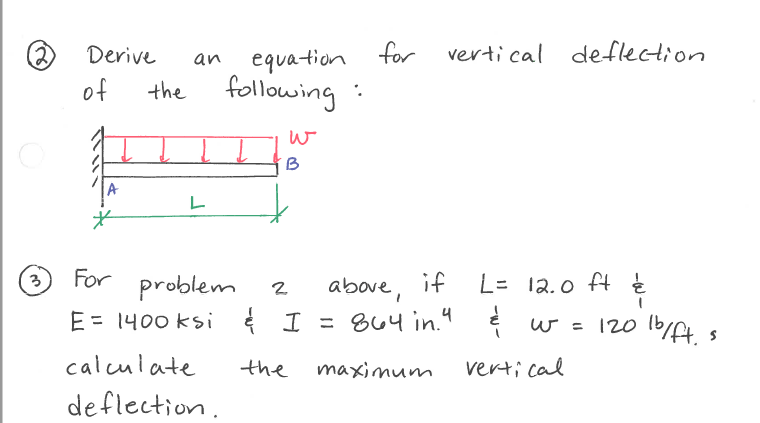 ② Derive an equation for vertical deflection
of the following :
w
B
A
L
③ For problem 2 above, if L= 12.0 ft &
E = 1400 ksi & I = 864 in.⁴ & w = 120 lb/ft. s
calculate the maximum vertical
deflection.